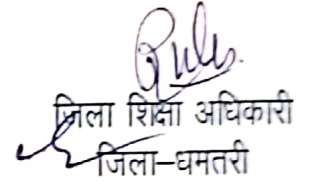 जिला शिक्षा अधिकारी
जिला-धमतरी